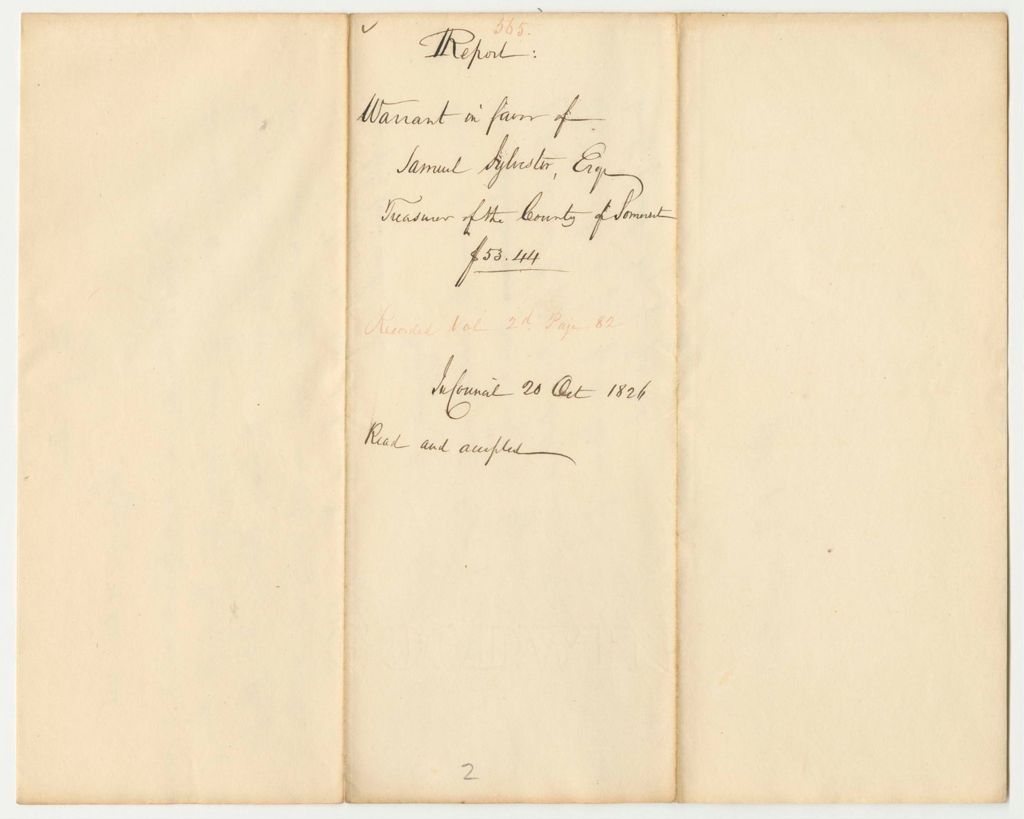 565.
Report:
Warrant in favor of
Samuel Sylvester, Esqr
Treasurer of the County of Somerset
$53.44
Recorded Vol 2d. Page 82
In Council 20 Oct 1826
Read and accepted
2